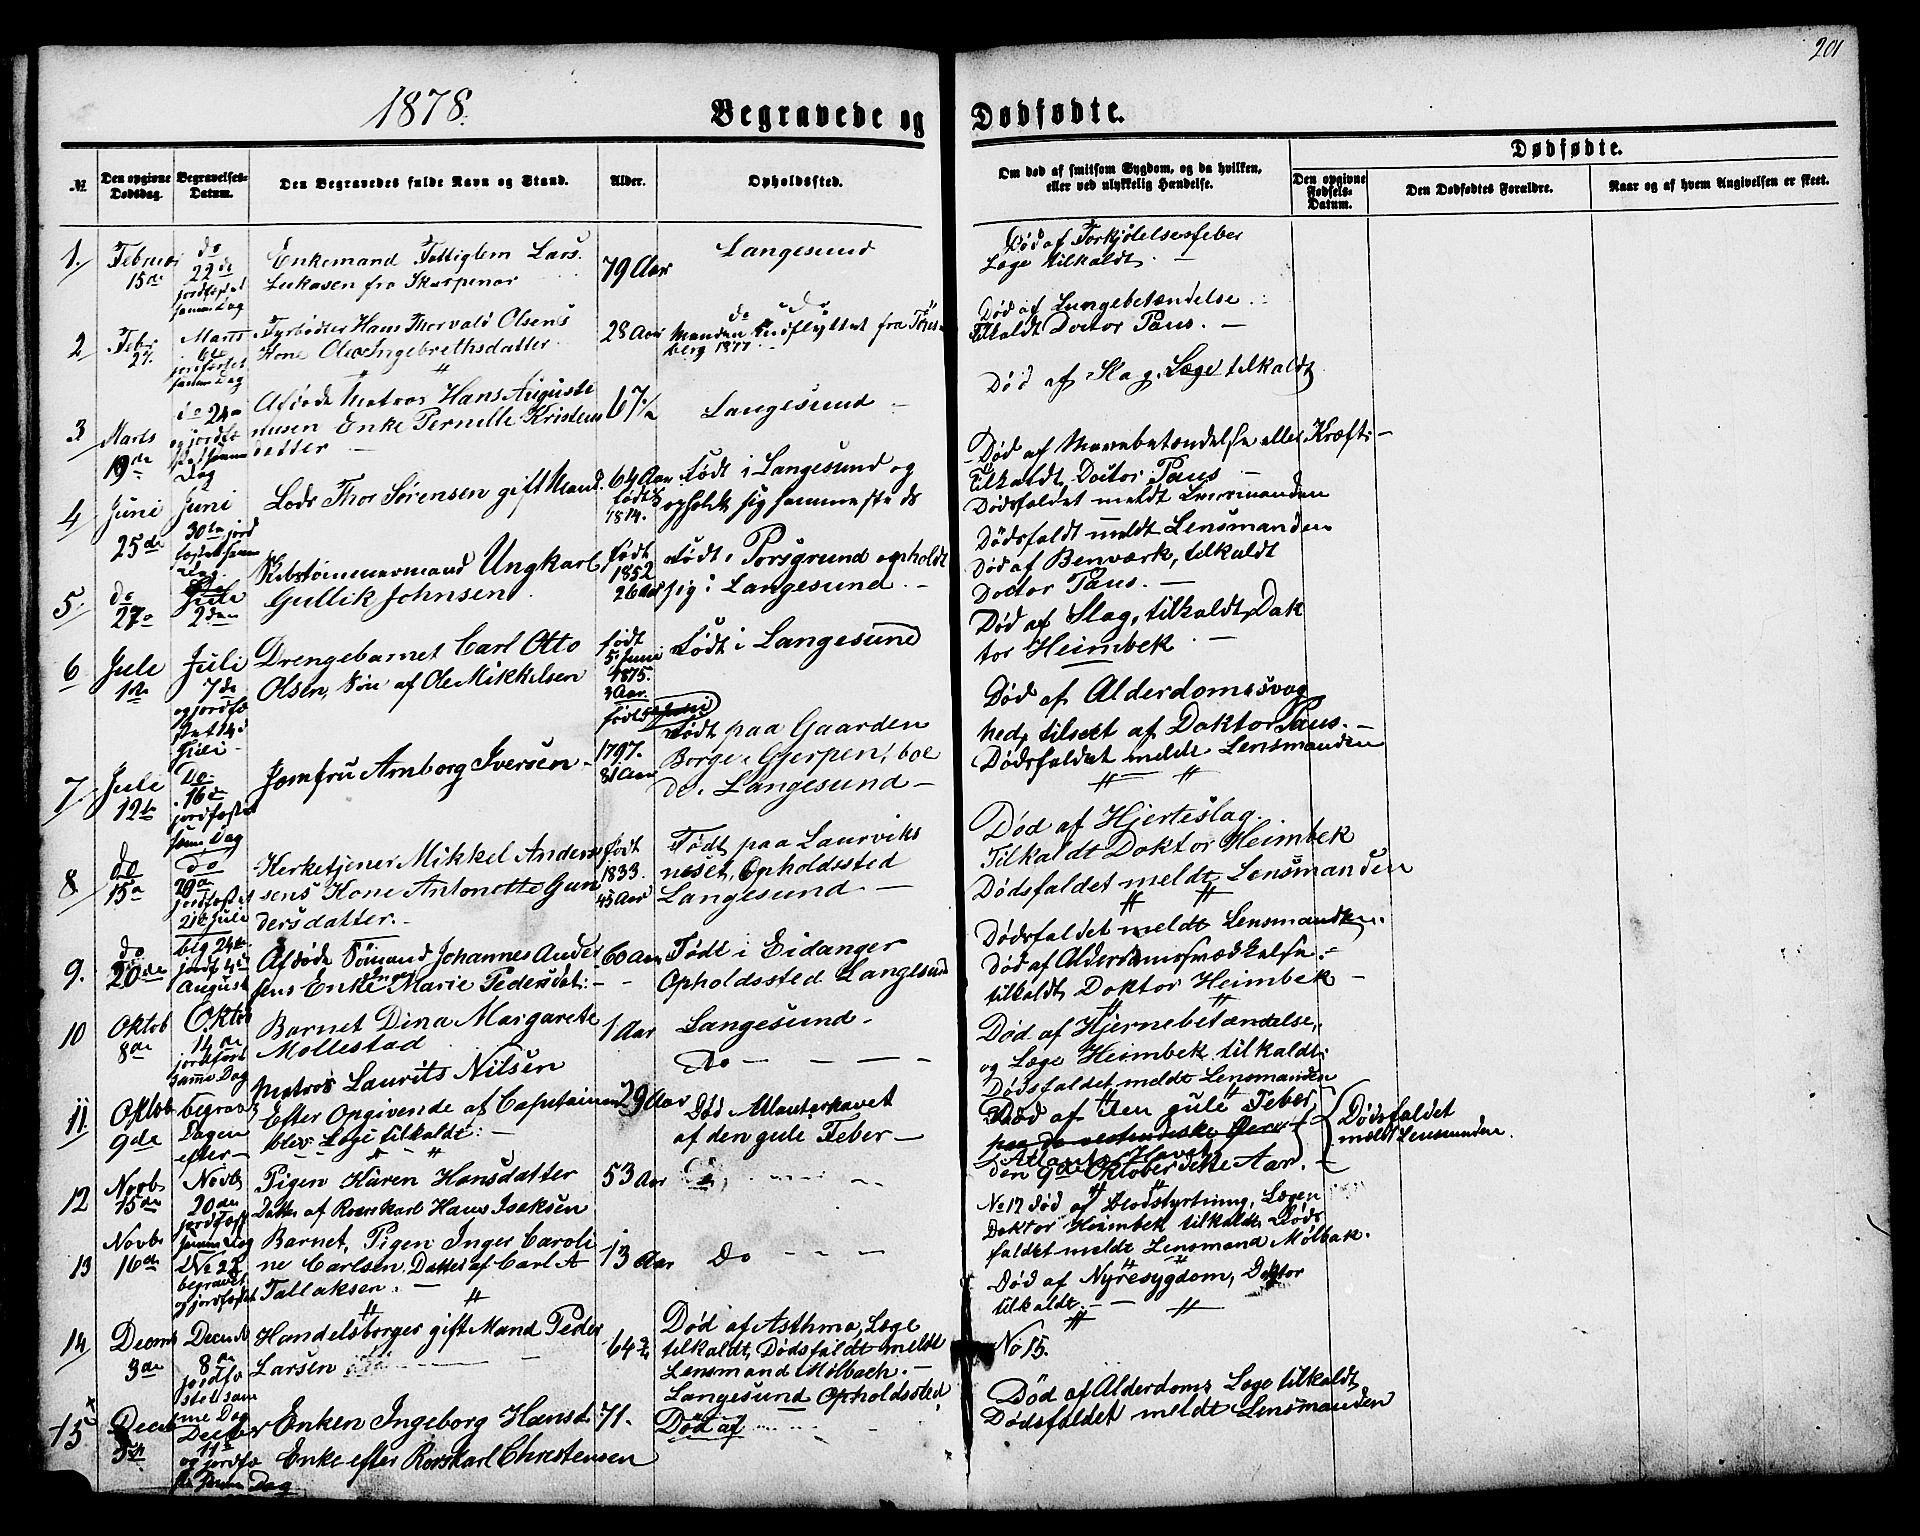 201
1878.
Begravede og Dødfødte.
№
Den opgivne Dødsdag.
Begravelses-Datum.
Den Begravedes fulde Navn og Stand.
Alder.
Opholdssted.
Om død af smitsom Sygdom, og da hvilken,
eller ved ulykkelig Hændelse.
Dødfødte.
Den opgivne Fødsels-Datum.
Den Dødfødtes Forældre.
Naar og af hvem Angivelsen er skeet.
1. Februar 15de
do 22de jordfæstet samme Dag
Enkemand Fattiglem Lars
Lukasen fra
79 Aar
Langesund
Død af Forkjølelsesfeber
Læge tilkaldt.
2 Febr 27.
Marts jordfæstet samme Dag
Fyrbødter Hans Thorvald Olsens
Kone Olea Ingebrethsdatter
28 Aar
do
Manden indflyttet fra Tøns-
berg 1877
Død af Lungebetændelse.
Tilkaldt Doctor Paus. —
3 Marts 19de
do 24de og jordfæstet samme Dag
Afdøde Matros Hans Auguste
nusen Enke Pernelle Kristens
datter —
67
Langesund —
Død af Slag, Læge tilkaldt
4 Juni 25de
Juni 30te jordfæstet samme Dag
Lods Thor Sørensen gift Mand.
64 Aar født 1814.
Født i Langesund og
opholdt sig sammesteds
Død af Mavebetændelse eller Kræft —
tilkaldt Doctor Paus —
Dødsfaldet meldt Lensmanden
5. do 27de
Juli 2den
Skibstømmermand Ungkarl
Gullik Johnsen.
Født 1852 26 Aar
Født i Porsgrund opholdt
sig i Langesund. —
Dødsfaldt meldt Lensmanden
Død af Benværk, tilkaldt
Doctor Paus. —
6 Jule 1ste
Juli 7de og jordfæstet 14de Juli
Drengebarnet Carl Otto
Olsen, Søn af Ole Mikkelsen
født 5. Juni 1875. 3 Aar.
Født i Langesund
Død af Slag, tilkaldt Dok
tor Heimbek. —
7 Jule 12te
Do 16de jordfæstet samme Dag
Jomfru Arnborg Iversen —
født 1797. 81 Aar
Født paa Gaarden
Borge i Gjerpen, boe
de i Langesund —
Død af Alderdomssvag
hed, tilseet af Doktor Paus. —
Dødsfaldet meldt Lensmanden
8 do 15de
do jordfæstet 21de Jule
Kerketjener Mikkel Anders
sens Kone Antonette Gun
dersdatter. —
født 1833. 45 Aar
Født paa Laurviks
neset, Opholdssted
Langesund —
Død af Hjerteslag.
Tilkaldt Doktor Heimbek
Dødsfaldet meldt Lensmanden
9. do 20de
beg 24de jordf August
Afdøde Sømand Johannes Ander
sens Enke Marie Pedersdat: —
60 Aar
Født i Eidanger
Opholdssted Langesund
Dødsfaldet meldt Lensmanden.
Død af Alderdomssvækkelse. —
tilkaldt Doktor Heimbek —
10 Oktob 8de
Oktob 14de jordfæst samme Dag
Barnet Dina Margarete
Møllestad
1 Aar
Langesund —
Død af Hjernebetændelse,
og Læge Heimbek tilkaldt:
Dødsfaldet meldt Lensmanden
11. Oktob 9de
begravet Dagen efter —
Matros Laurits Nilsen
Efter Opgivende af Captainen
blev Læge tilkaldt: —
29 Aar
Do — — — —
Død Atlanterhavet
af den gule Feber —
Død af den gule Feber,
Atlanterhavet
den 9de Oktober dette Aar. —
Dødsfaldet
meldt Lensmanden.
12 Novb 15de
Novb 20de jordfæst samme Dag
Pigen Karen Hansdatter
Datter af Rorskarl Hans Isaksen
53 Aar
Do
No 12 død af Blodstyrtning, Lægen
Doktor Heimbek tilkaldt, Døds
faldet meldt Lensmand Mølbak.
13 Novb 16de
begravet og jordfæstet
Barnet, Pigen Inger Caroli
ne Carlsen, Datter af Carl A
Tallaksen. —
13 Aar
Do — — —
Død af Nyresygdom, Doktor
tilkaldt. —
14 Decmb 3de
Decmb 8de jordfæstet samme Dag
Handelsborger gift Mand Peder
Larsen
64
Død af Asthma, Læge
tilkaldt, Dødsfaldt meldt
Lensmand Mølbach. —
Langesund Opholdssted
No 15.
15 Decb 5te
Decber 11te og jordfæ samme Dag
Enken Ingeborg Hansd
Enke efter Rorskarl Christensen
71.
Død af
Død af Alderdoms Læge tilkaldt,
Dødsfaldet meldt Lensmanden